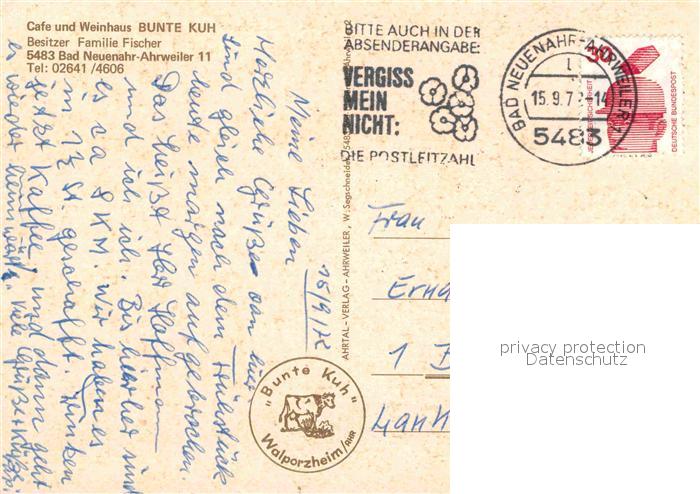 Cafe und Weinhaus BUNTE KUH
Besitzer Familie Fischer
5483 Bad Neuenahr-Ahrweiler 11
Tel: 02641 /4606
BITTE AUCH IN DER
ABSENDERANGABE:
VERGISS
MEIN
NICHT:
DIE POSTLEITZAHL
BAD NEUENAHR-AHRWEILER 1
15.9.7 -14
5483
30
DEUTSCHE BUNDESPOST
AHRTAL-VERLAG - AHRWEILER, W. Segschneider, 5483
15/9/72
Meine Lieben
Herzliche Grüße von hier
sind gleich nach dem Frühstück
heute morgen aufgebrochen.
Das heißt Herr Hoffmann
und ich. Bis hierher sind
es ca 8 KM. Wir haben es
in 1½ St. geschafft. Trinken
jetzt Kaffee und dann geht
es wieder heimwärts. Viele Grüße
"Bunte Kuh"
Walporzheim/AHR
Frau
Erna
1 B
privacy protection
Datenschutz